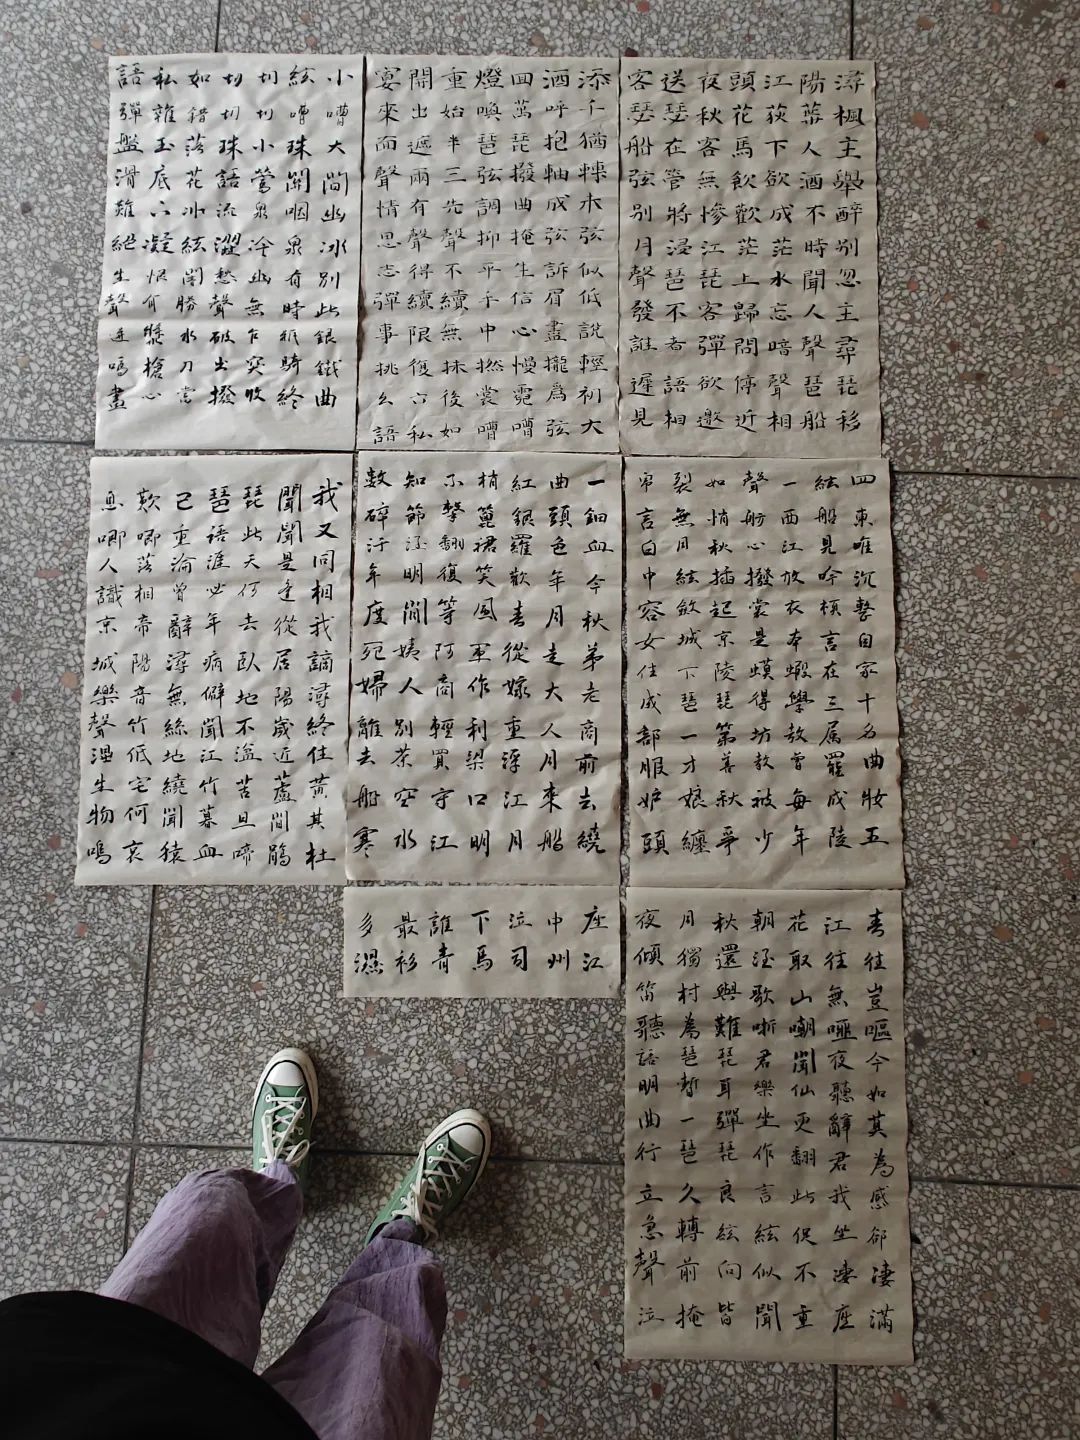 潯陽江頭夜送客
楓葉荻花秋瑟瑟
主人下馬客在船
舉酒欲飲無管弦
醉不成歡慘將別
別時茫茫江浸月
忽聞水上琵琶聲
主人忘歸客不發
尋聲暗問彈者誰
琵琶聲停欲語遲
移船相近邀相見
添酒回燈重開宴
千呼萬喚始出來
猶抱琵琶半遮面
轉軸撥弦三兩聲
未成曲調先有情
弦弦掩抑聲聲思
似訴生平不得志
低眉信手續續彈
說盡心中無限事
輕攏慢撚抹復挑
初爲霓裳後六幺
大弦嘈嘈如私語
小絃切切如私語
嘈嘈切切錯雜彈
大珠小珠落玉盤
間關鶯語花底滑
幽咽泉流冰下難
冰泉冷澀絃凝絕
別有幽愁闇恨生
此時無聲勝有聲
銀瓶乍破水漿迸
鐵騎突出刀槍鳴
曲終收撥當心畫
四絃一聲如裂帛
東船西舫悄無言
唯見江心秋月白
沉吟放撥插絃中
整頓衣裳起斂容
自言本是京城女
家在蝦蟆陵下住
十三學得琵琶成
名屬教坊第一部
曲罷曾教善才服
妝成每被秋娘妒
五陵年少爭纏頭
一曲紅梢不知數
鈿頭銀篦擊節碎
血色羅裙翻酒汙
今年歡笑復明年
秋月春風等閒度
弟走從軍阿姨死
老大嫁作商人婦
商人重利輕別離
前月浮梁買茶去
去來江口守空船
繞船月明江水寒
我聞琵琶已歎息
又聞此語重唧唧
同是天涯淪落人
相逢何必曾相識
我從去年辭帝京
謫居臥病潯陽城
潯陽地僻無音樂
終歲不聞絲竹聲
住近湓江地低濕
黃蘆苦竹繞宅生
其間旦暮聞何物
杜鵑啼血猿哀鳴
春江花朝秋月夜
往往取酒還獨傾
豈無山歌與村笛
嘔啞嘲哳難為聽
今夜聞君琵琶語
如聽仙樂耳暫明
莫辭更坐彈一曲
為君翻作琵琶行
感我此言良久立
卻坐促絃絃轉急
淒淒不似向前聲
滿座重聞皆掩泣
座中泣下誰最多
江州司馬青衫濕